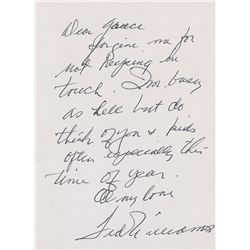 Dear
forgive me for
not keeping in
touch. I'm busy
as hell but do
think of you & kids
often especially this
time of year.
All my love
Ted Williams